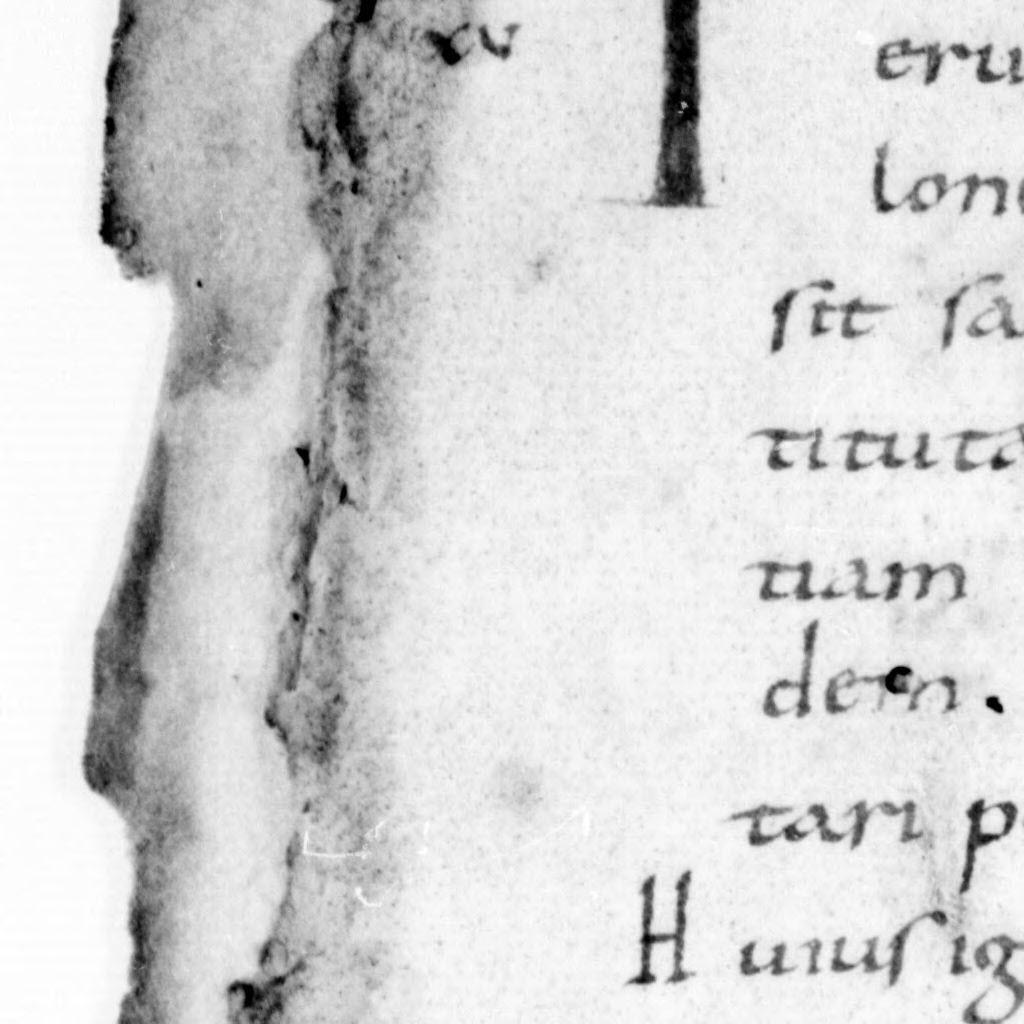 xv
eru
lon
sit sa
tituta
tiam
dem.
tari p
Huius ig